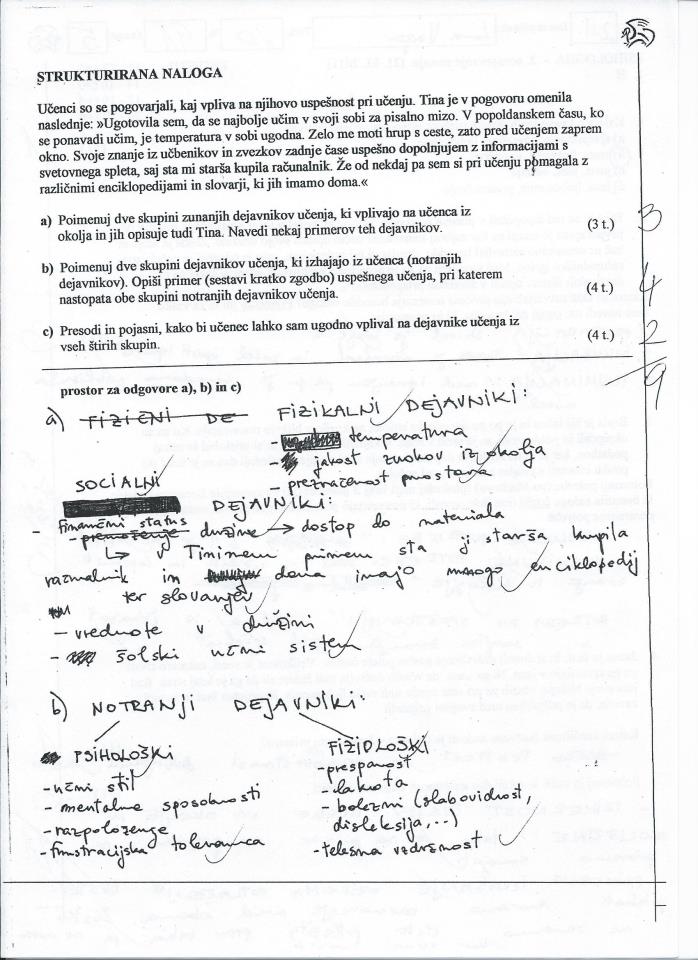 STRUKTURIRANA NALOGA
Učenci so se pogovarjali, kaj vpliva na njihovo uspešnost pri učenju. Tina je v pogovoru omenila
naslednje: »Ugotovila sem, da se najbolje učim v svoji sobi za pisalno mizo. V popoldanskem času, ko
se ponavadi učim, je temperatura v sobi ugodna. Zelo me moti hrup s ceste, zato pred učenjem zaprem
okno. Svoje znanje iz učbenikov in zvezkov zadnje čase uspešno dopolnjujem z informacijami s
svetovnega spleta, saj sta mi starša kupila računalnik. Že od nekdaj pa sem si pri učenju pomagala z
različnimi enciklopedijami in slovarji, ki jih imamo doma.«
a) Poimenuj dve skupini zunanjih dejavnikov učenja, ki vplivajo na učenca iz
okolja in jih opisuje tudi Tina. Navedi nekaj primerov teh dejavnikov. (3 t.) 3
b) Poimenuj dve skupini dejavnikov učenja, ki izhajajo iz učenca (notranjih
dejavnikov). Opiši primer (sestavi kratko zgodbo) uspešnega učenja, pri katerem
nastopata obe skupini notranjih dejavnikov učenja. (4 t.) 4
c) Presodi in pojasni, kako bi učenec lahko sam ugodno vplival na dejavnike učenja iz
vseh štirih skupin. (4 t.) 2
9
prostor za odgovore a), b) in c)
a) FIZIČNI DE FIZIKALNI DEJAVNIKI:
- temperatura
- jakost zvokov iz okolja
- prezračenost prostora
SOCIALNI
DEJAVNIKI:
- finančni status
premoženje družine → dostop do materiala
↳ v Tininem primeru sta ji starša kupila
računalnik in doma imajo mnogo enciklopedij
ter slovarjev
- vrednote v družini
- šolski učni sistem
b) NOTRANJI DEJAVNIKI:
PSIHOLOŠKI
- učni stil
- mentalne sposobnosti
- razpoloženje
- frustracijska toleranca
FIZIOLOŠKI
- prespanost
- lakota
- bolezni (slabovidnost,
disleksija,...)
- telesna vzdržnost